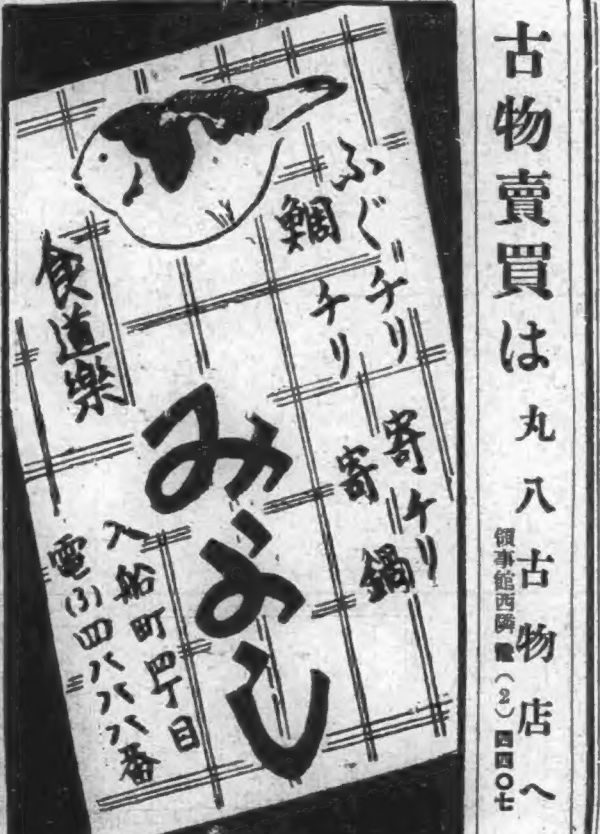 古物賣買は丸八古物店へ
領事館西隣 電(2)四四〇七
ふぐチリ
鯛チリ
寄チリ
寄鍋
食道樂
みよし
入船町四丁目
電(3)四八八八番